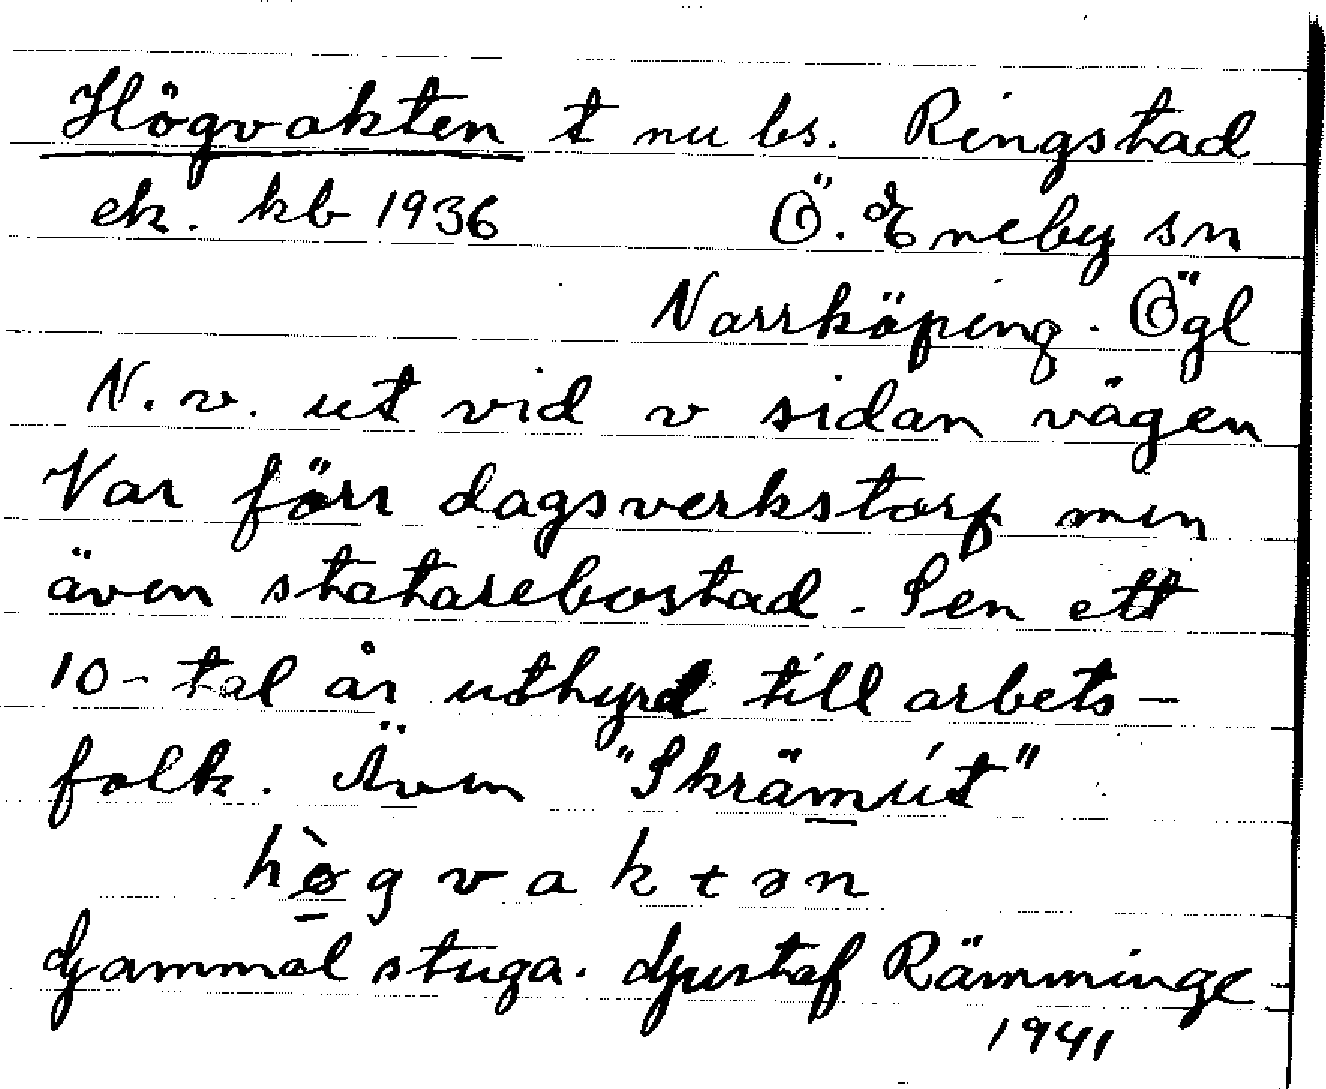 Högvakten t nu bs. Ringstad
ek. kb 1936 Ö. Eneby sn
Norrköping. Ögl
N. v. ut vid v sidan vägen
Var förr dagsverkstorp men
även statarebostad. Sen ett
10-tal år uthyrd till arbets-
folk. Även "Skrämút"
hø̀gvaktən
Gammal stuga. Gustaf Rämminge
1941